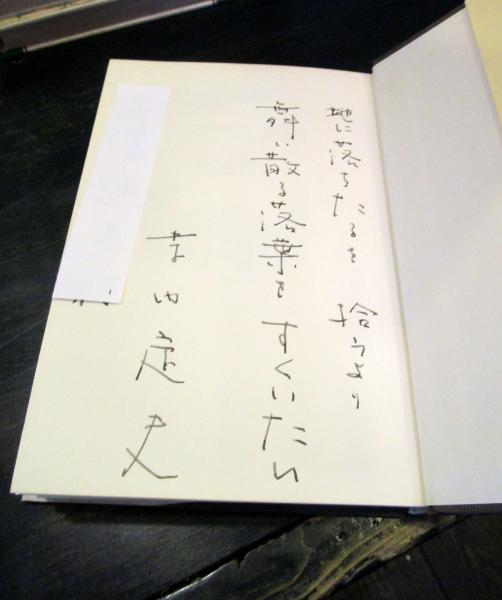 地に落ちたるを 拾うより
舞い散る落葉を すくいたい
幸田定史